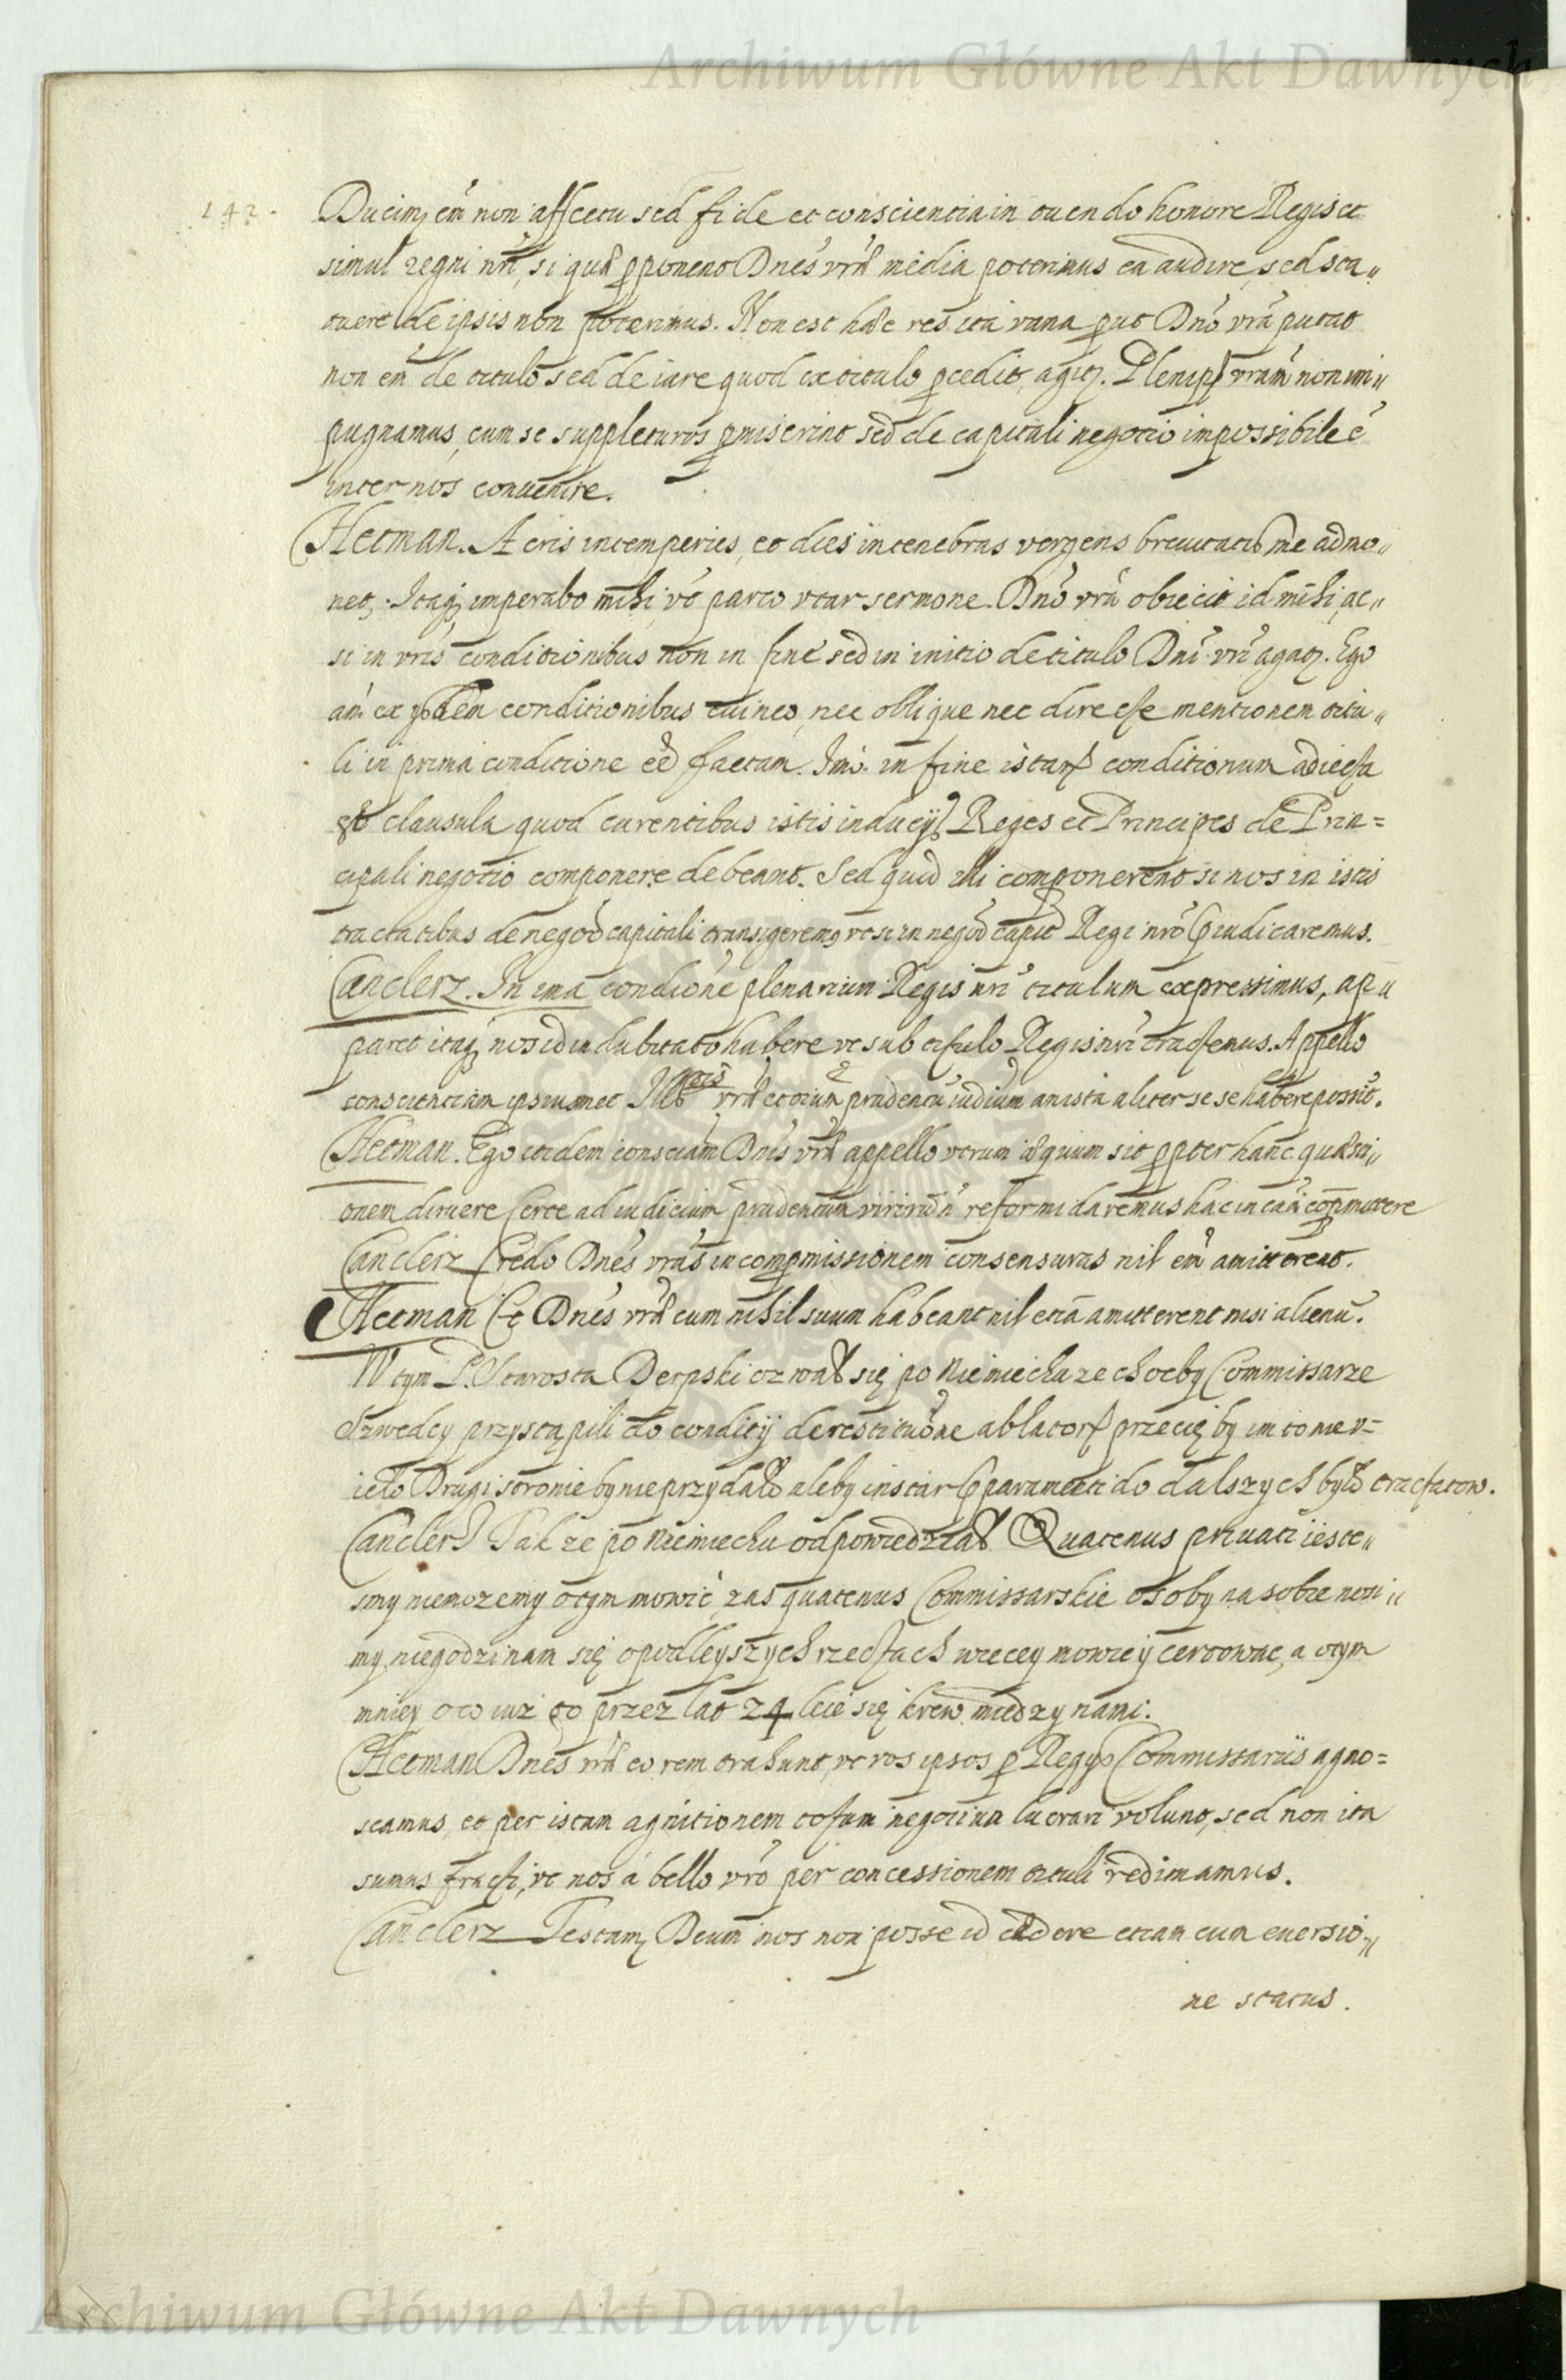 Archiwum Główne Akt Dawnych
142.
Ducimꝫ em̄ non affectu sed fide et conscientia in tuendo honore Regis et
simul regni nr̄i, si quæ ꝓponent Dnēs vr̄æ média poterimus ea audire, sed sta„
tuere de ipsis non poterimus. Non est hæc res ita vana ꝓut Dnō vr̄a putat
non em̄ de titulo sed de iure quod ex titulo ꝓcedit, agitꝫ. Plenip vr̄am non im„
pugnamus, cum se suppleturos ꝓmiserint sed de capitali negotio impossibile ē
inter nos conuenire.
Hetman. Aeris intemperies, et dies in tenebras vergens breuitatis me admo„
net, Itaqꝫ imperabo mihi, vt parco vtar sermone. Dnō vr̄a obiecit id mihi, ac„
si in vr̄is conditionibus non in fine sed in initio de titulo Dnī vr̄i agatꝫ. Ego
aū ex ysdem conditionibus euinco, nec oblique nec directe mentionem titu„
li in prima conditione eē factam. Imo in fine istarꝝ conditionum adiecta
est clausula quod durentibus istis inducijs Reges et Principes de Prin=
cipali negotio componere debeant. Sed quid illi componerent si nos in istis
tractatibus de negoō capitali transigeremꝯ vt si in negoō capit Regi nr̄o ꝓiudicaremus.
Canclerz. In ima condiōne plenarium Regis nr̄i titulum expressimus, ap„
paret itaqꝫ nos id indubitato habere vt sub titulo Regis nr̄i tractemus. Appello
conscientiam ipsiusmet vr̄æ et oium prudentū iudium an ista aliter sese habere possit.
Hetman. Ego itidem consciam Dnis vr̄æ appello vtrum æquum sit ꝓpter hanc quæsti„
onem diruere certe ad iudicium prudentum reformidaremus hac in cā comꝓmittere
Canclerz Credo Dnēs vr̄as in comꝓmissionem consensuras nil em̄ amitterent.
Hetman Et Dnēs vr̄æ cum nihil suum habeant nil etiā amitterent nisi alienū.
W tym P. Starosta Derpski ozwał się po Niemiecku ze choćby Commissarze
Szwedcy przystąpili do conditij de restitutōne ablatorꝝ przecię by im to nie v=
ięło Drugi stronie by nie przydało ale by instar ꝓparamenti do dalszych było tractatow.
Canclerz Takze po Niemiecku odpowiedział Quatenus priuati ieste„
smy niemozemy otym mowić, zas quatenus Commissarskie osoby na sobie nosi„
my, niegodzi nam się o podleyszych rzeczach wiecey mowić y certowac, a otym
mniey oto iuz to przez lat 24 leie się krew miedzy nami.
Hetman Dnēs vr̄æ eo rem trahunt, vt vos ipsos ꝓ Regys Commissariis agno=
scamus, et per istam agnitionem totum negotium lucrari volunt, sed non ita
sumus fracti, vt nos à bello vr̄o per concessionem tituli redimamus.
Canclerz Testamꝫ Deum nos non posse id cedere etiam cum euersio„
ne status.
Archiwum Główne Akt Dawnych